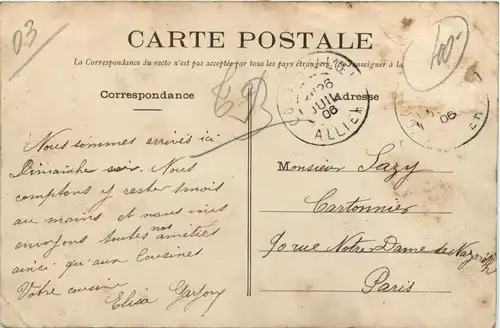 03
400
CARTE POSTALE
La Correspondance du recto n'est pas acceptée par tous les pays étrangers. (Se renseigner à la
Correspondance
Adresse
TB
26
JUIL
06
ALLIER
06
Nous sommes arrivés ici
Dimanche soir. Nous
comptons y rester 1 mois
au moins et nous vous
envoyons toutes nos amitiés
ainsi qu'aux Cousines.
Votre cousine
Elisa
Monsieur Lazy
Cartonnier
90 rue Notre Dame de Nazareth
Paris